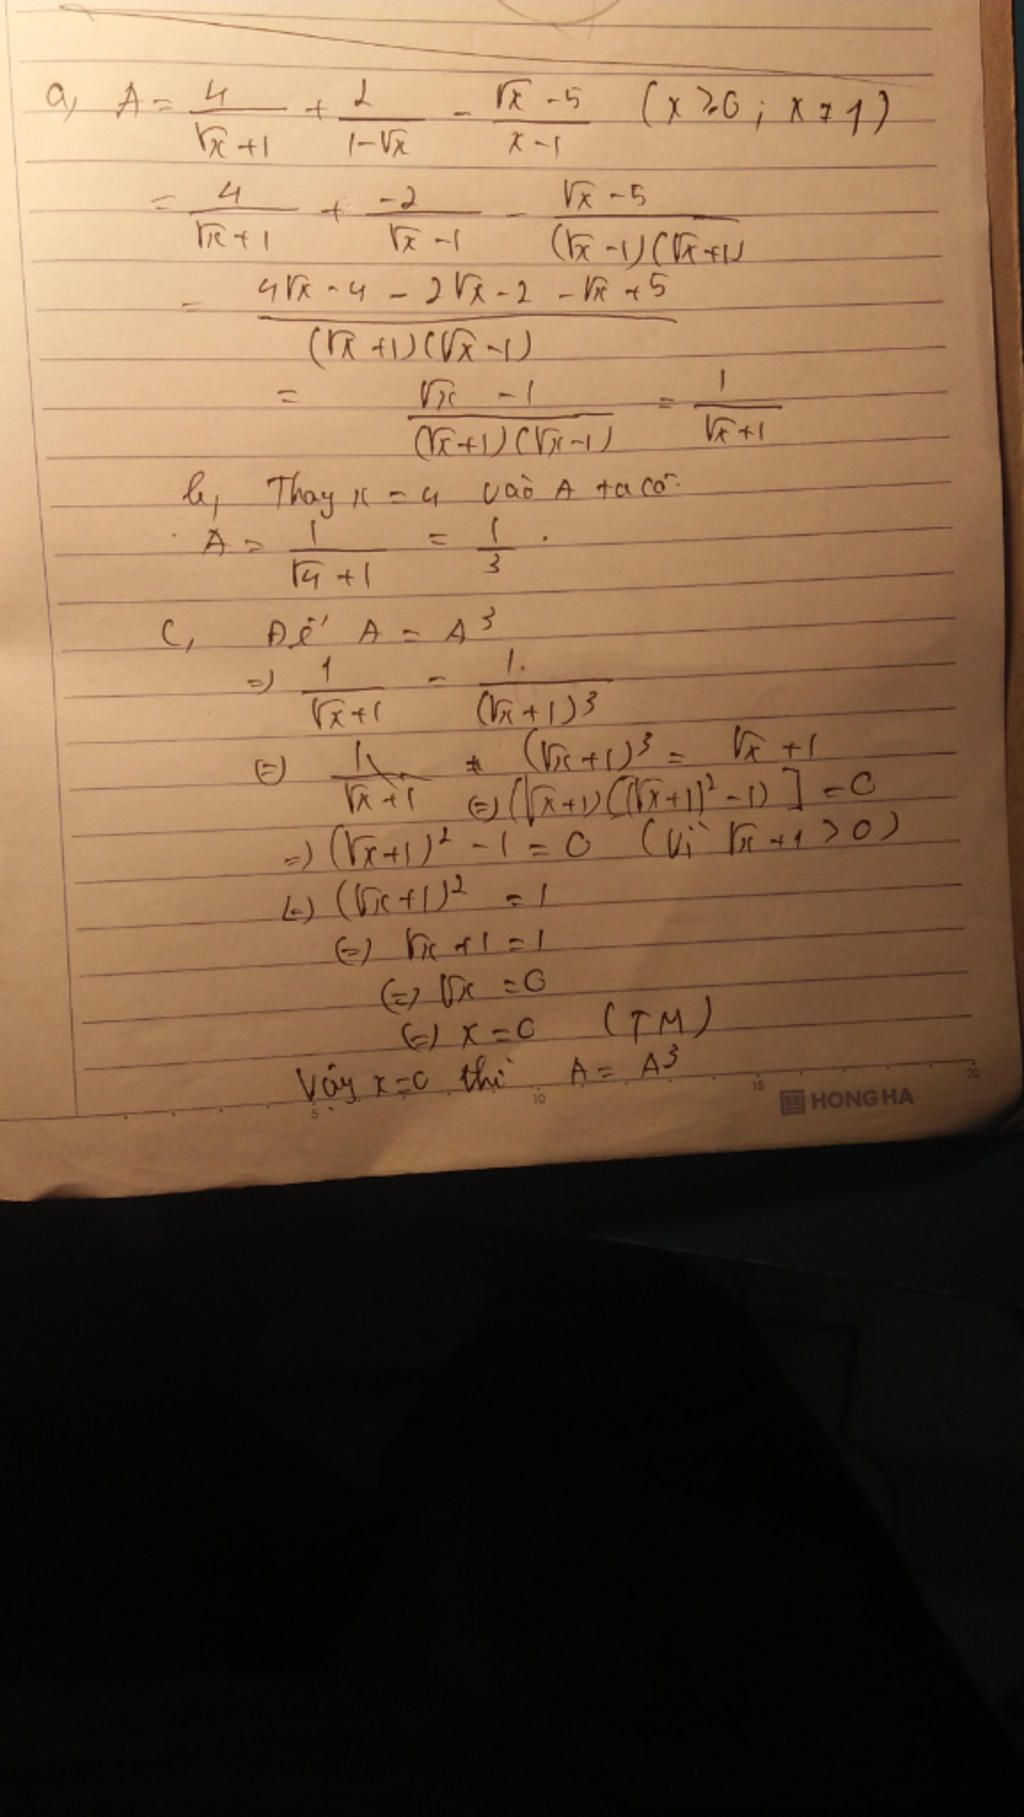 a, A = 4/(√x+1) + 2/(1-√x) - (√x-5)/(x-1) (x≥0; x≠1)
= 4/(√x+1) + -2/(√x-1) - (√x-5)/((√x-1)(√x+1)
= (4√x-4-2√x-2-√x+5)/((√x+1)(√x-1))
= (√x-1)/((√x+1)(√x-1)) = 1/(√x+1)
b, Thay x = 4 vào A ta có:
A = 1/(√4+1) = 1/3.
C, Để A = A³
=) 1/(√x+1) = 1/(√x+1)³
(=) 1/(√x+1) (√x+1)³ = √x+1
(=) (√x+1)([√x+1)²-1)] = 0
=) (√x+1)² - 1 = 0 (Vì √x+1 > 0)
(=) (√x+1)² = 1
(=) √x+1 = 1
(=) √x = 0
(=) x = 0 (TM)
Vây x=0 thì A = A³
5 10 15 20
HONG HA